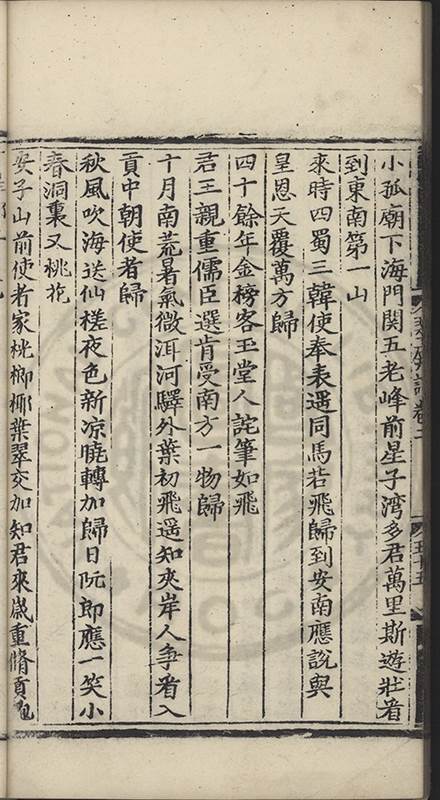 小孤廟下海門関五老峰前星子湾多君萬里斯遊壯看
到東南第一山
來時四蜀三韓使奉表遇同馬若飛歸到安南應說與
皇恩天覆萬方歸
四十餘年金榜客玉堂人詫筆如飛
君王親重儒臣選肯受南方一物歸
十月南荒暑氣微洱河驛外葉初飛遥知夾岸人爭看入
貢中朝使者歸
秋風吹海送仙槎夜色新凉曉轉加歸日阮郎應一笑小
春洞裏又桃花
安子山前使者家桄榔椰葉翠交加知君來歲重脩貢
五十五